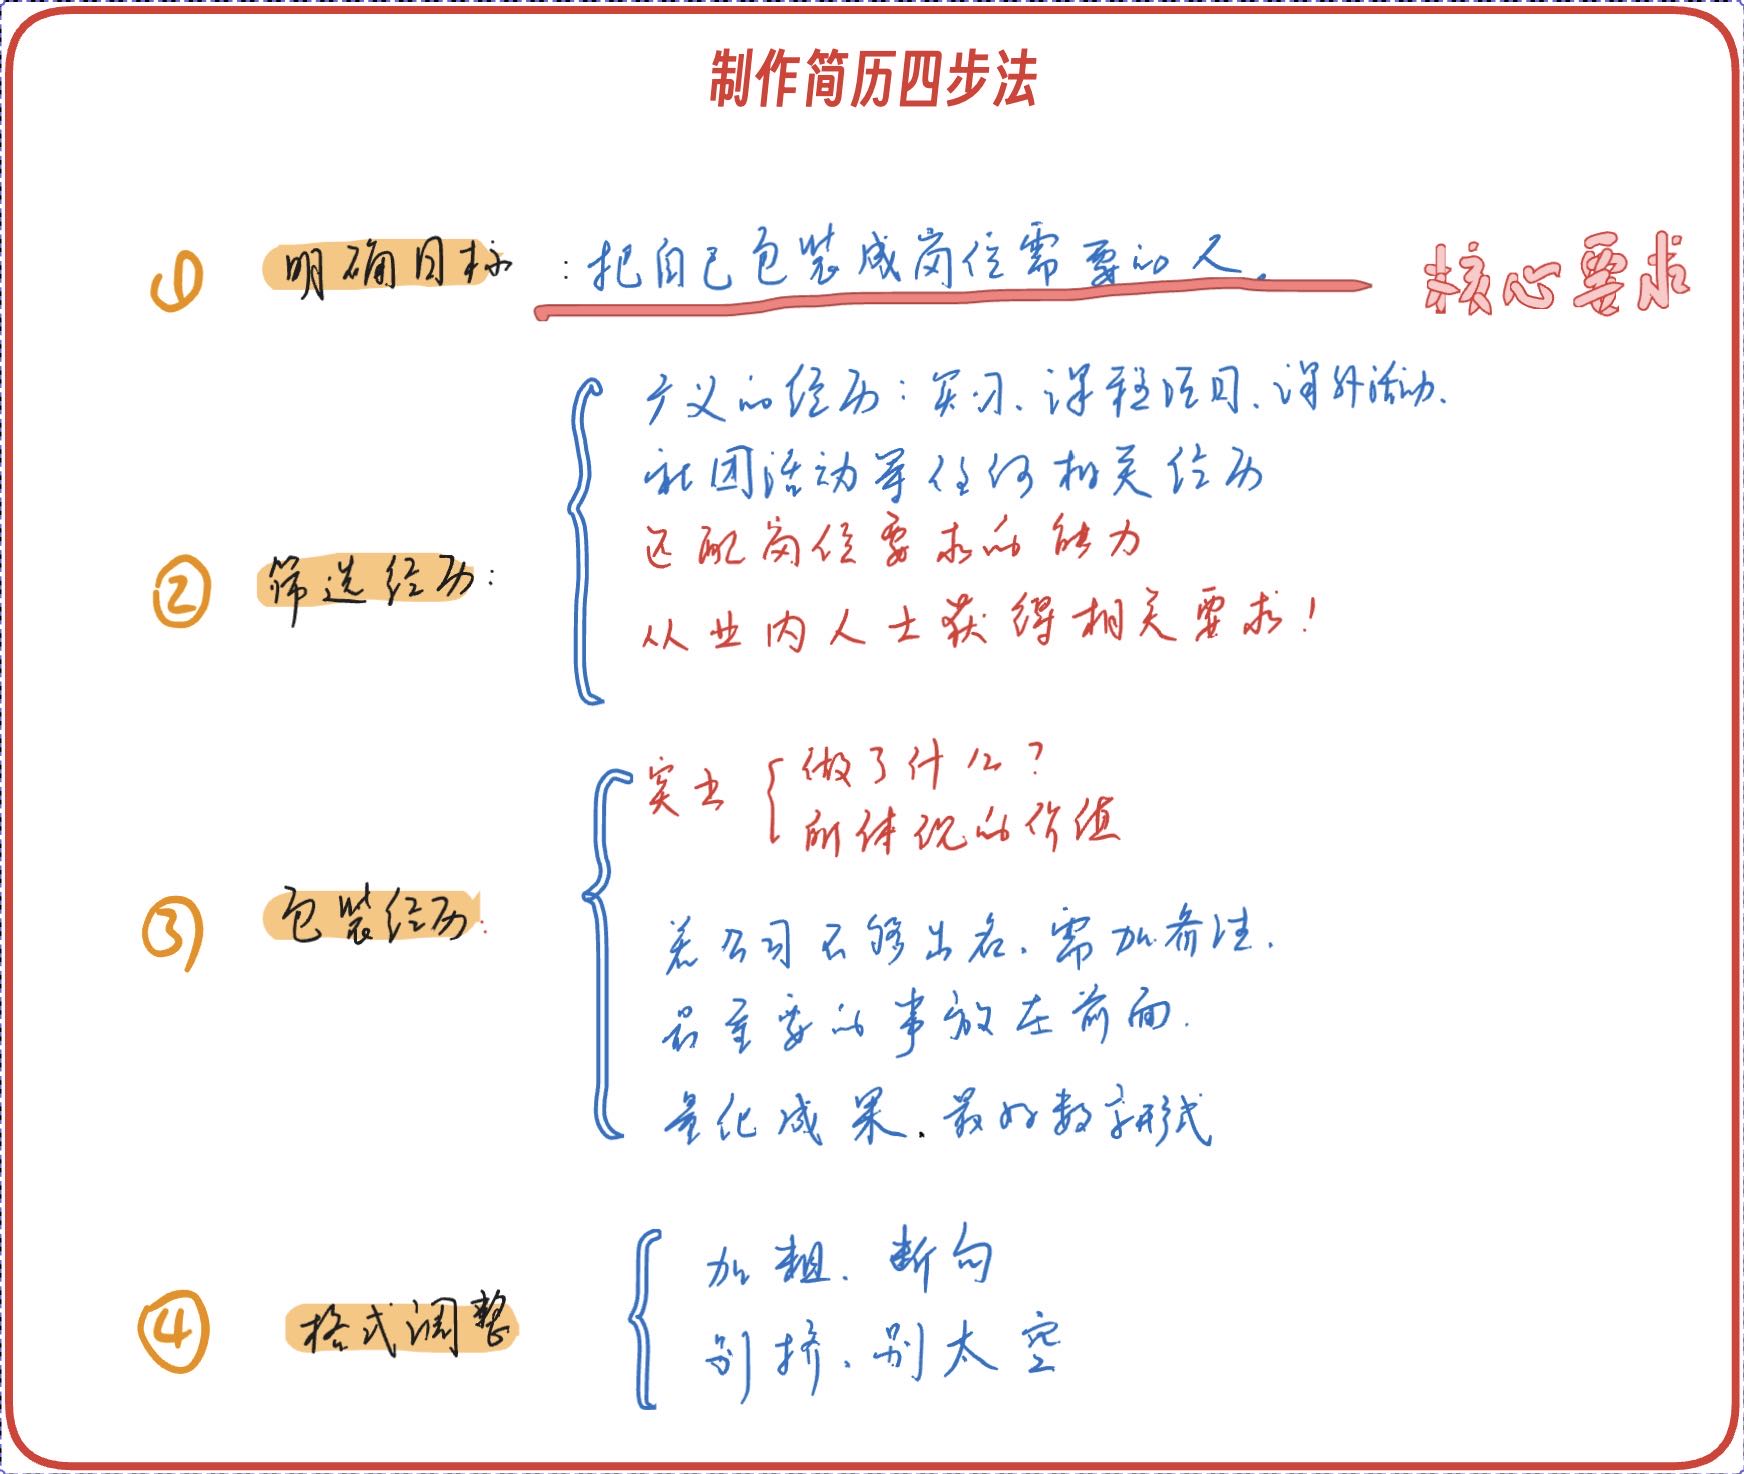 制作简历四步法
① 明确目标：把自己包装成岗位需要的人。 核心要求
② 筛选经历：
广义的经历：实习、课程项目、课外活动、
社团活动等任何相关经历
匹配岗位要求的能力
从业内人士获得相关要求！
③ 包装经历：
突出
做了什么？
所体现的价值
若公司不够出名、需加备注.
最重要的事放在前面.
量化成果、最好数字形式
④ 格式调整
加粗、断句
别挤、别太空